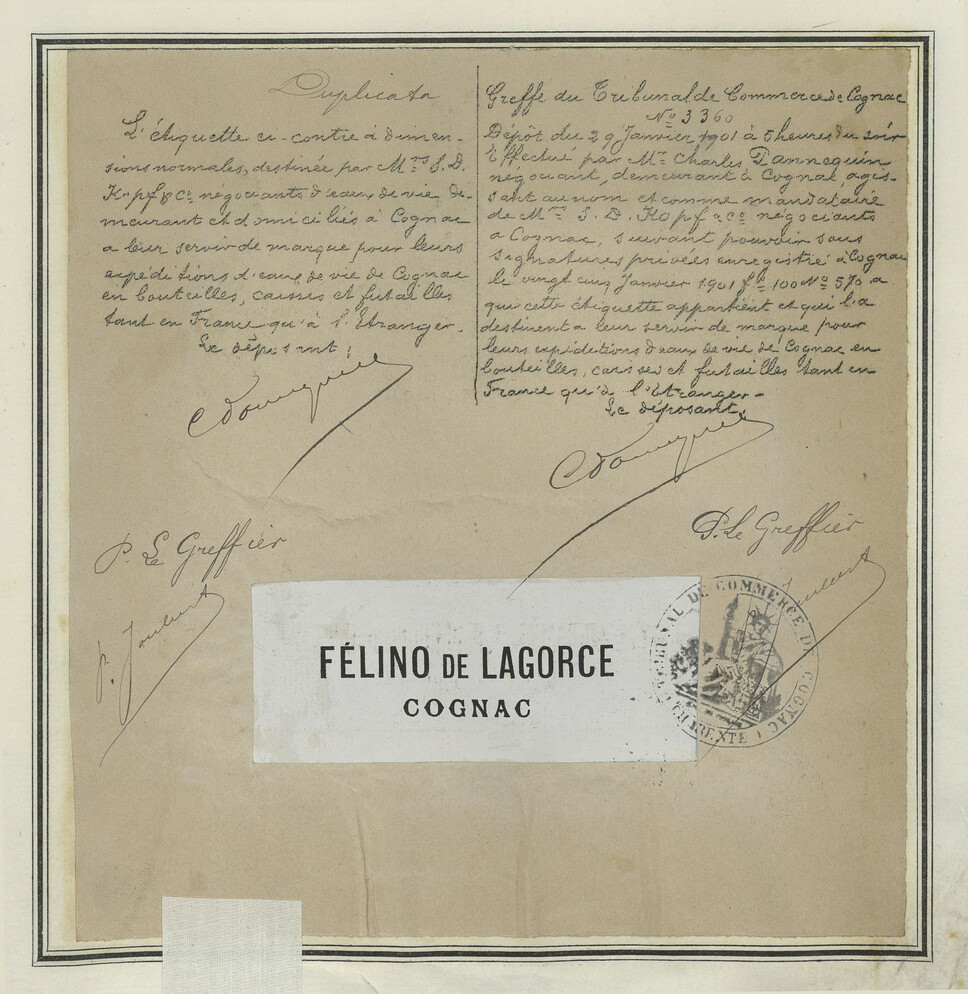 Duplicata
L'étiquette ci-contre à dimen-
sions normales, destinée par Mrs S. D.
Kopf & Co négociants d'eaux de vie de-
meurant et domiciliés à Cognac
a leur servir de marque pour leurs
expéditions d'eaux de vie de Cognac
en bouteilles, caisses et futailles
tant en France qu'à l'Etranger.
Le déposant :
P. Le Greffier
P. Joubert
Greffe du Tribunal de Commerce de Cognac
No 3360
Dépôt du 29 Janvier 1901 à 5 heures du soir
Effectué par Mr Charles
négociant, demeurant à Cognac, agis-
sant au nom et comme mandataire
de Mrs S. D. Kopf & Co négociants
a Cognac, suivant pouvoir sous
signatures privées enregistré à Cognac
le vingt cinq Janvier 1901 fo 100 No 570 a
qui cette étiquette appartient et qui l'a
destinent a leur servir de marque pour
leurs expéditions d'eaux de vie de Cognac en
bouteilles, caisses et futailles tant en
France qu'à l'Etranger-
Le déposant:
P. Le Greffier
Joubert
FÉLINO DE LAGORCE
COGNAC
TRIBUNAL DE COMMERCE DE COGNAC
CHARENTE